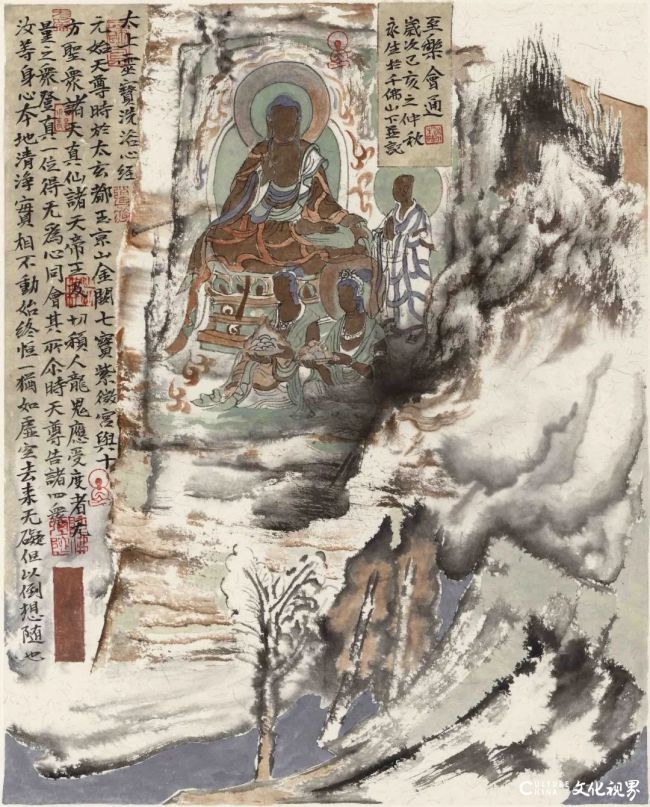 至樂會通
歲次己亥之仲秋
永生於千佛山下並記
太上靈寶洗浴心經
元始天尊時於太玄都玉京山金闕七寶紫微宮與十
方聖衆諸天真仙諸天帝王及一切類人龍鬼應受度者无
量之衆登真一位得无為心同會其所尒時天尊告諸四衆
汝等身心本地清淨實相不動始終恒一猶如虛空去來无礙但以倒想隨也
CULTURE
CHINA
文化视界